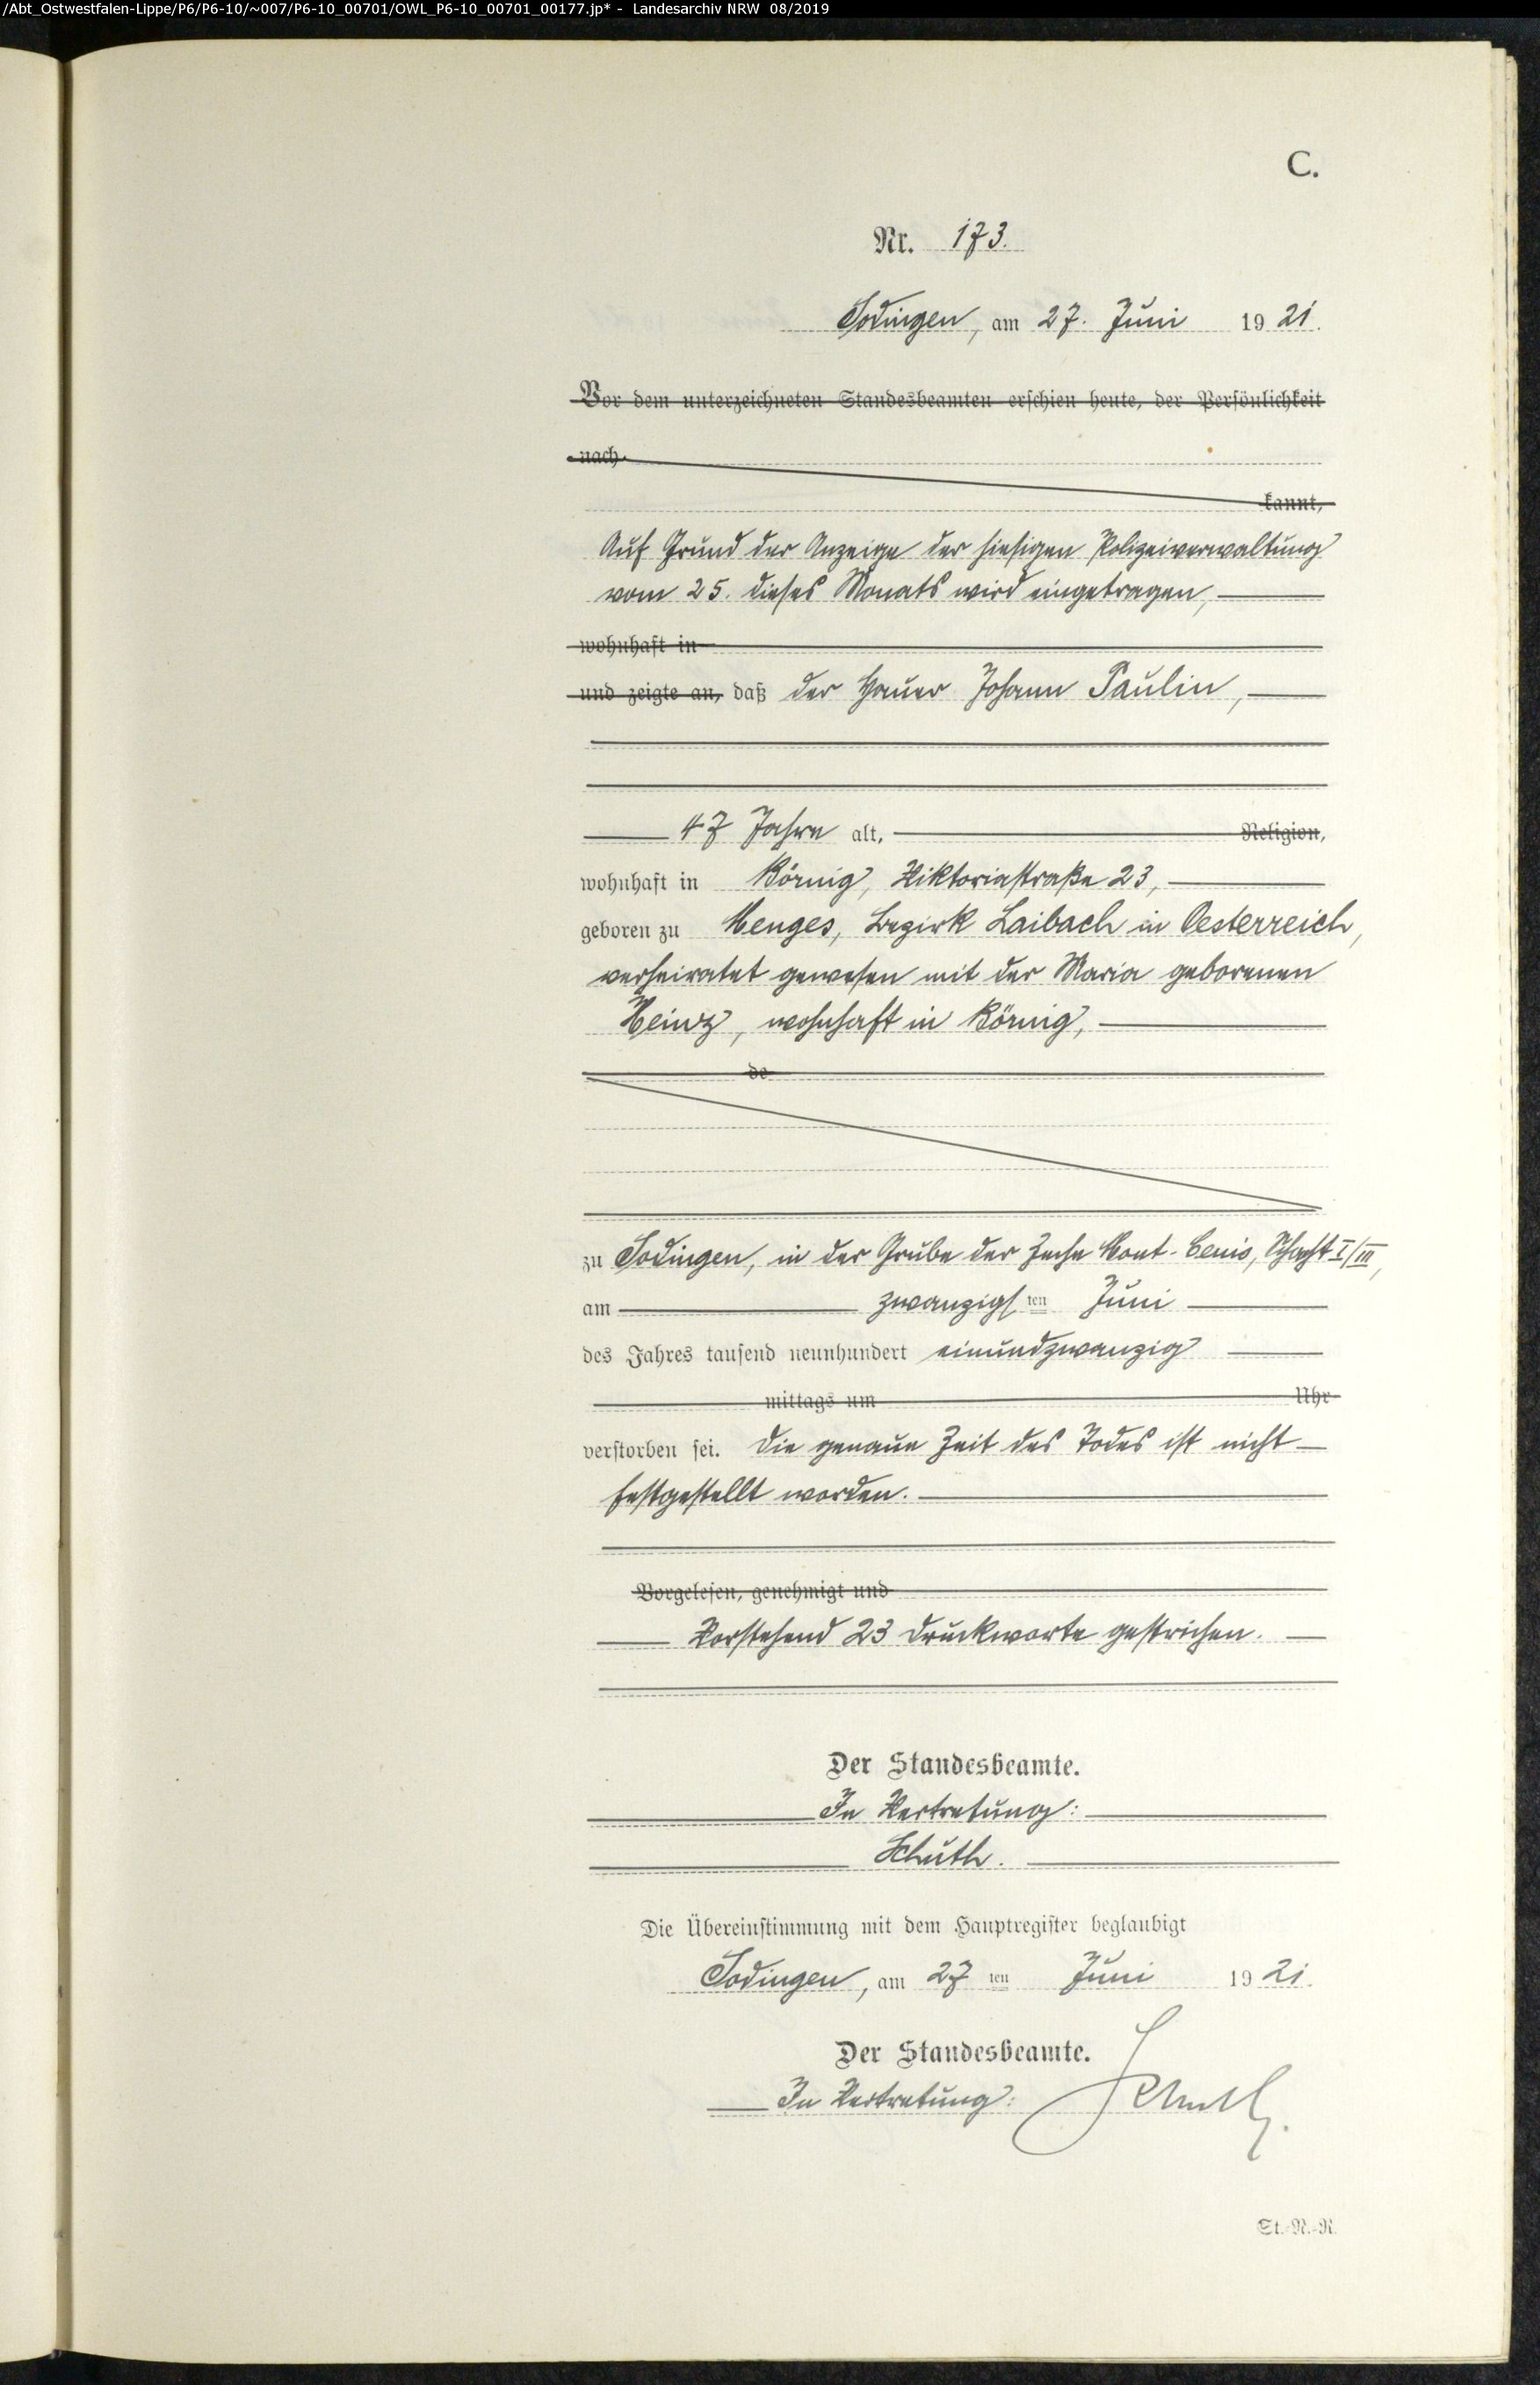 /Abt_Ostwestfalen-Lippe/P6/P6-10/~007/P6-10_00701/OWL_P6-10_00701_00177.jp* - Landesarchiv NRW 08/2019
C.
Nr. 173.
Sodingen, am 27. Juni 1921.
Vor dem unterzeichneten Standesbeamten erschien heute, der Persönlichkeit
nach
kannt,
Auf Grund der Anzeige der hiesigen Polizeiverwaltung
vom 25. dieses Monats wird eingetragen,
wohnhaft in
und zeigte an, daß der Hauer Johann Paulin,
47 Jahre alt, Religion,
wohnhaft in Börnig, Viktoriastraße 23,
geboren zu Menges, Bezirk Laibach in Oesterreich,
verheiratet gewesen mit der Maria geborenen
Heinz, wohnhaft in Börnig,
de
zu Sodingen, in der Grube der Zeche Mont-Cenis, Schacht I/III,
am zwanzigsten Juni
des Jahres tausend neunhundert einundzwanzig
mittags um Uhr
verstorben sei. Die genaue Zeit des Todes ist nicht
festgestellt worden.
Vorgelesen, genehmigt und
Vorstehend 23 Druckworte gestrichen.
Der Standesbeamte.
In Vertretung:
Schuth.
Die Übereinstimmung mit dem Hauptregister beglaubigt
Sodingen, am 27ten Juni 1921.
Der Standesbeamte.
In Vertretung: Schuth.
St.-N.-R.